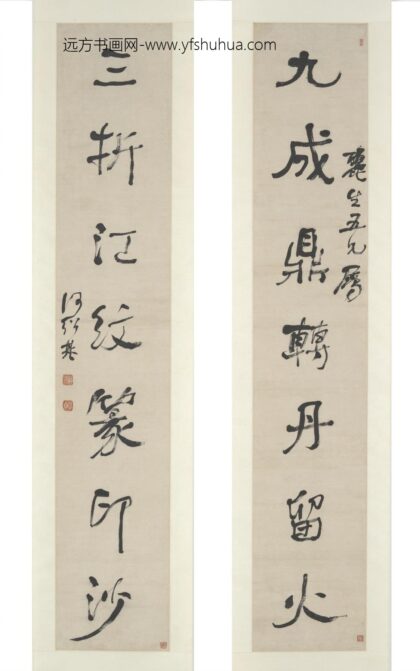 远方书画网-www.yfshuhua.com
九成鼎转丹留火
麓生五兄属
三折江纹篆印沙
何绍基